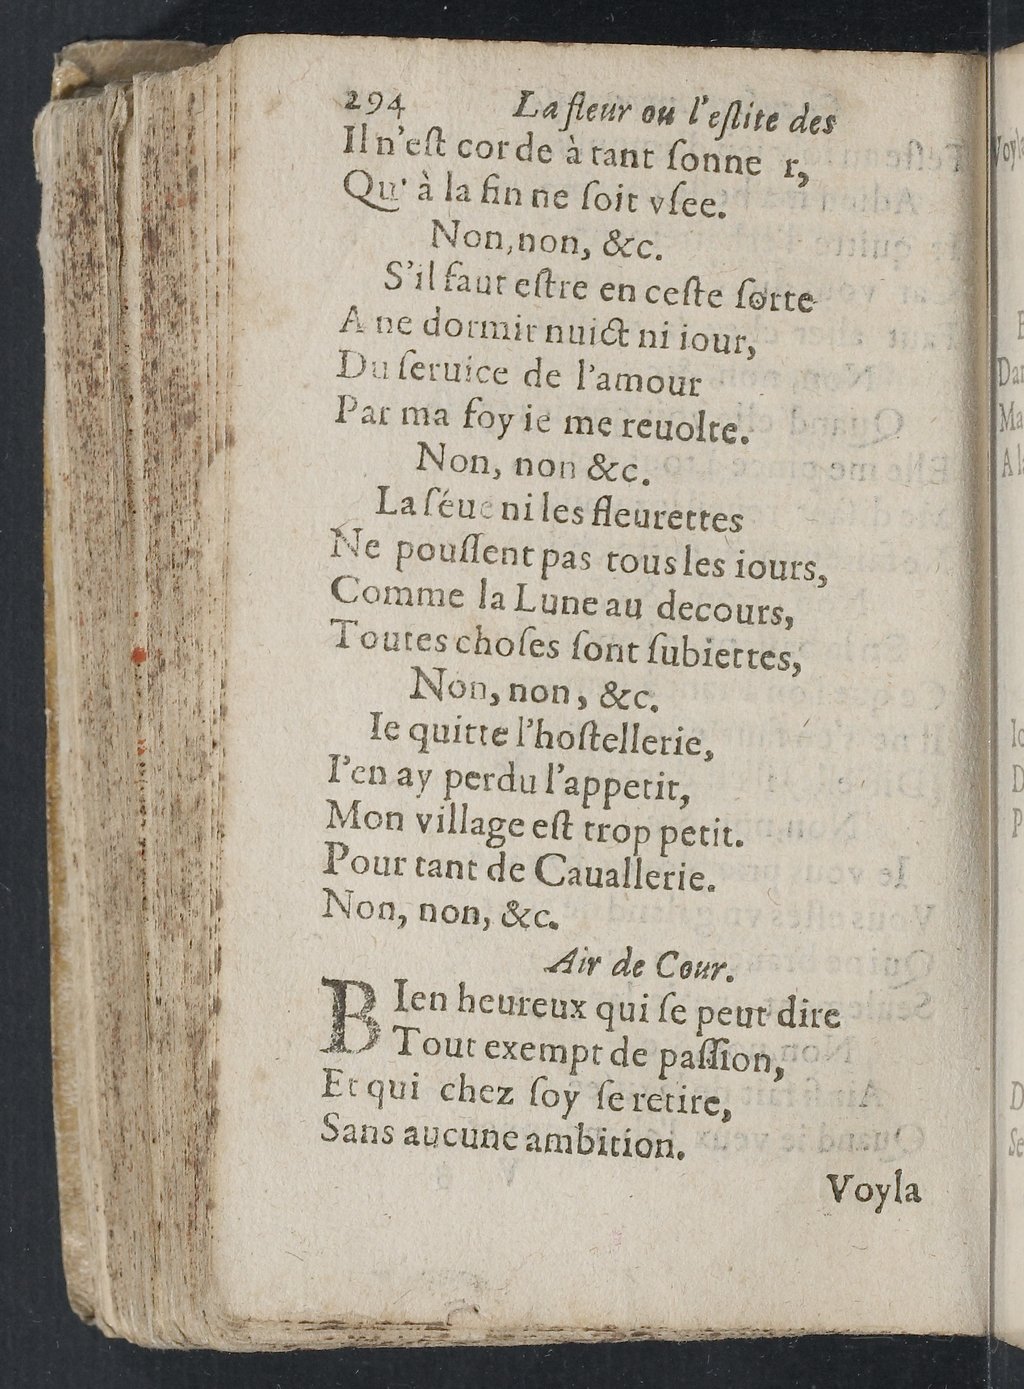 294 La fleur ou l'eſlite des
Il n'eſt corde à tant ſonne r,
Qu' à la fin ne ſoit vſee.
Non, non, &c.
S'il faut eſtre en ceſte ſorte
A ne dormir nuict ni iour,
Du ſeruice de l'amour
Par ma foy ie me reuolte.
Non, non &c.
La ſéue ni les fleurettes
Ne pouſſent pas tous les iours,
Comme la Lune au decours,
Toutes choſes ſont ſubiettes,
Non, non, &c.
Ie quitte l'hoſtellerie,
I'en ay perdu l'appetit,
Mon village eſt trop petit.
Pour tant de Cauallerie.
Non, non, &c.
Air de Cour.
BIen heureux qui ſe peut dire
Tout exempt de paſſion,
Et qui chez ſoy ſe retire,
Sans aucune ambition.
Voyla